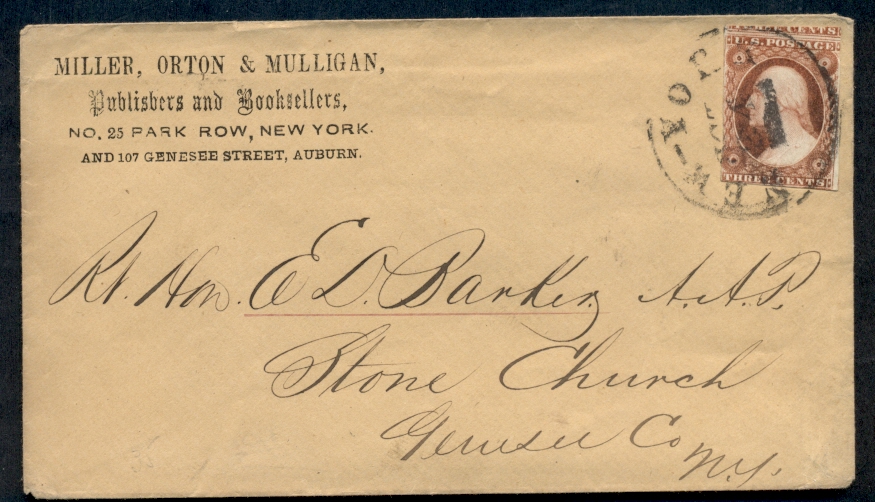 MILLER, ORTON & MULLIGAN,
Publishers and Booksellers,
NO. 25 PARK ROW, NEW YORK.
AND 107 GENESEE STREET, AUBURN.
CENTS
U.S. POSTAGE
THREE CENTS
NEW-YO
Rt. Hon. E D. Barker, A.A.P.
Stone Church
Genesee Co
N.Y.